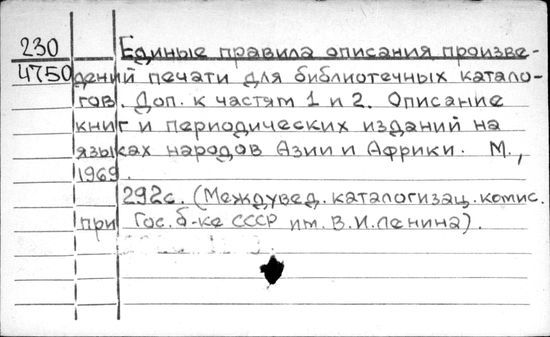 230 Единые правила описания произве-
4750 дений печати для библиотечных катало-
гов. Доп. к частям 1 и 2. Описание
книг и периодических изданий на
языках народов Азии и Африки. М.,
1969.
292с. (Междувед. каталогизац. комис.
при Гос. б-ке СССР им. В.И.Ленина).